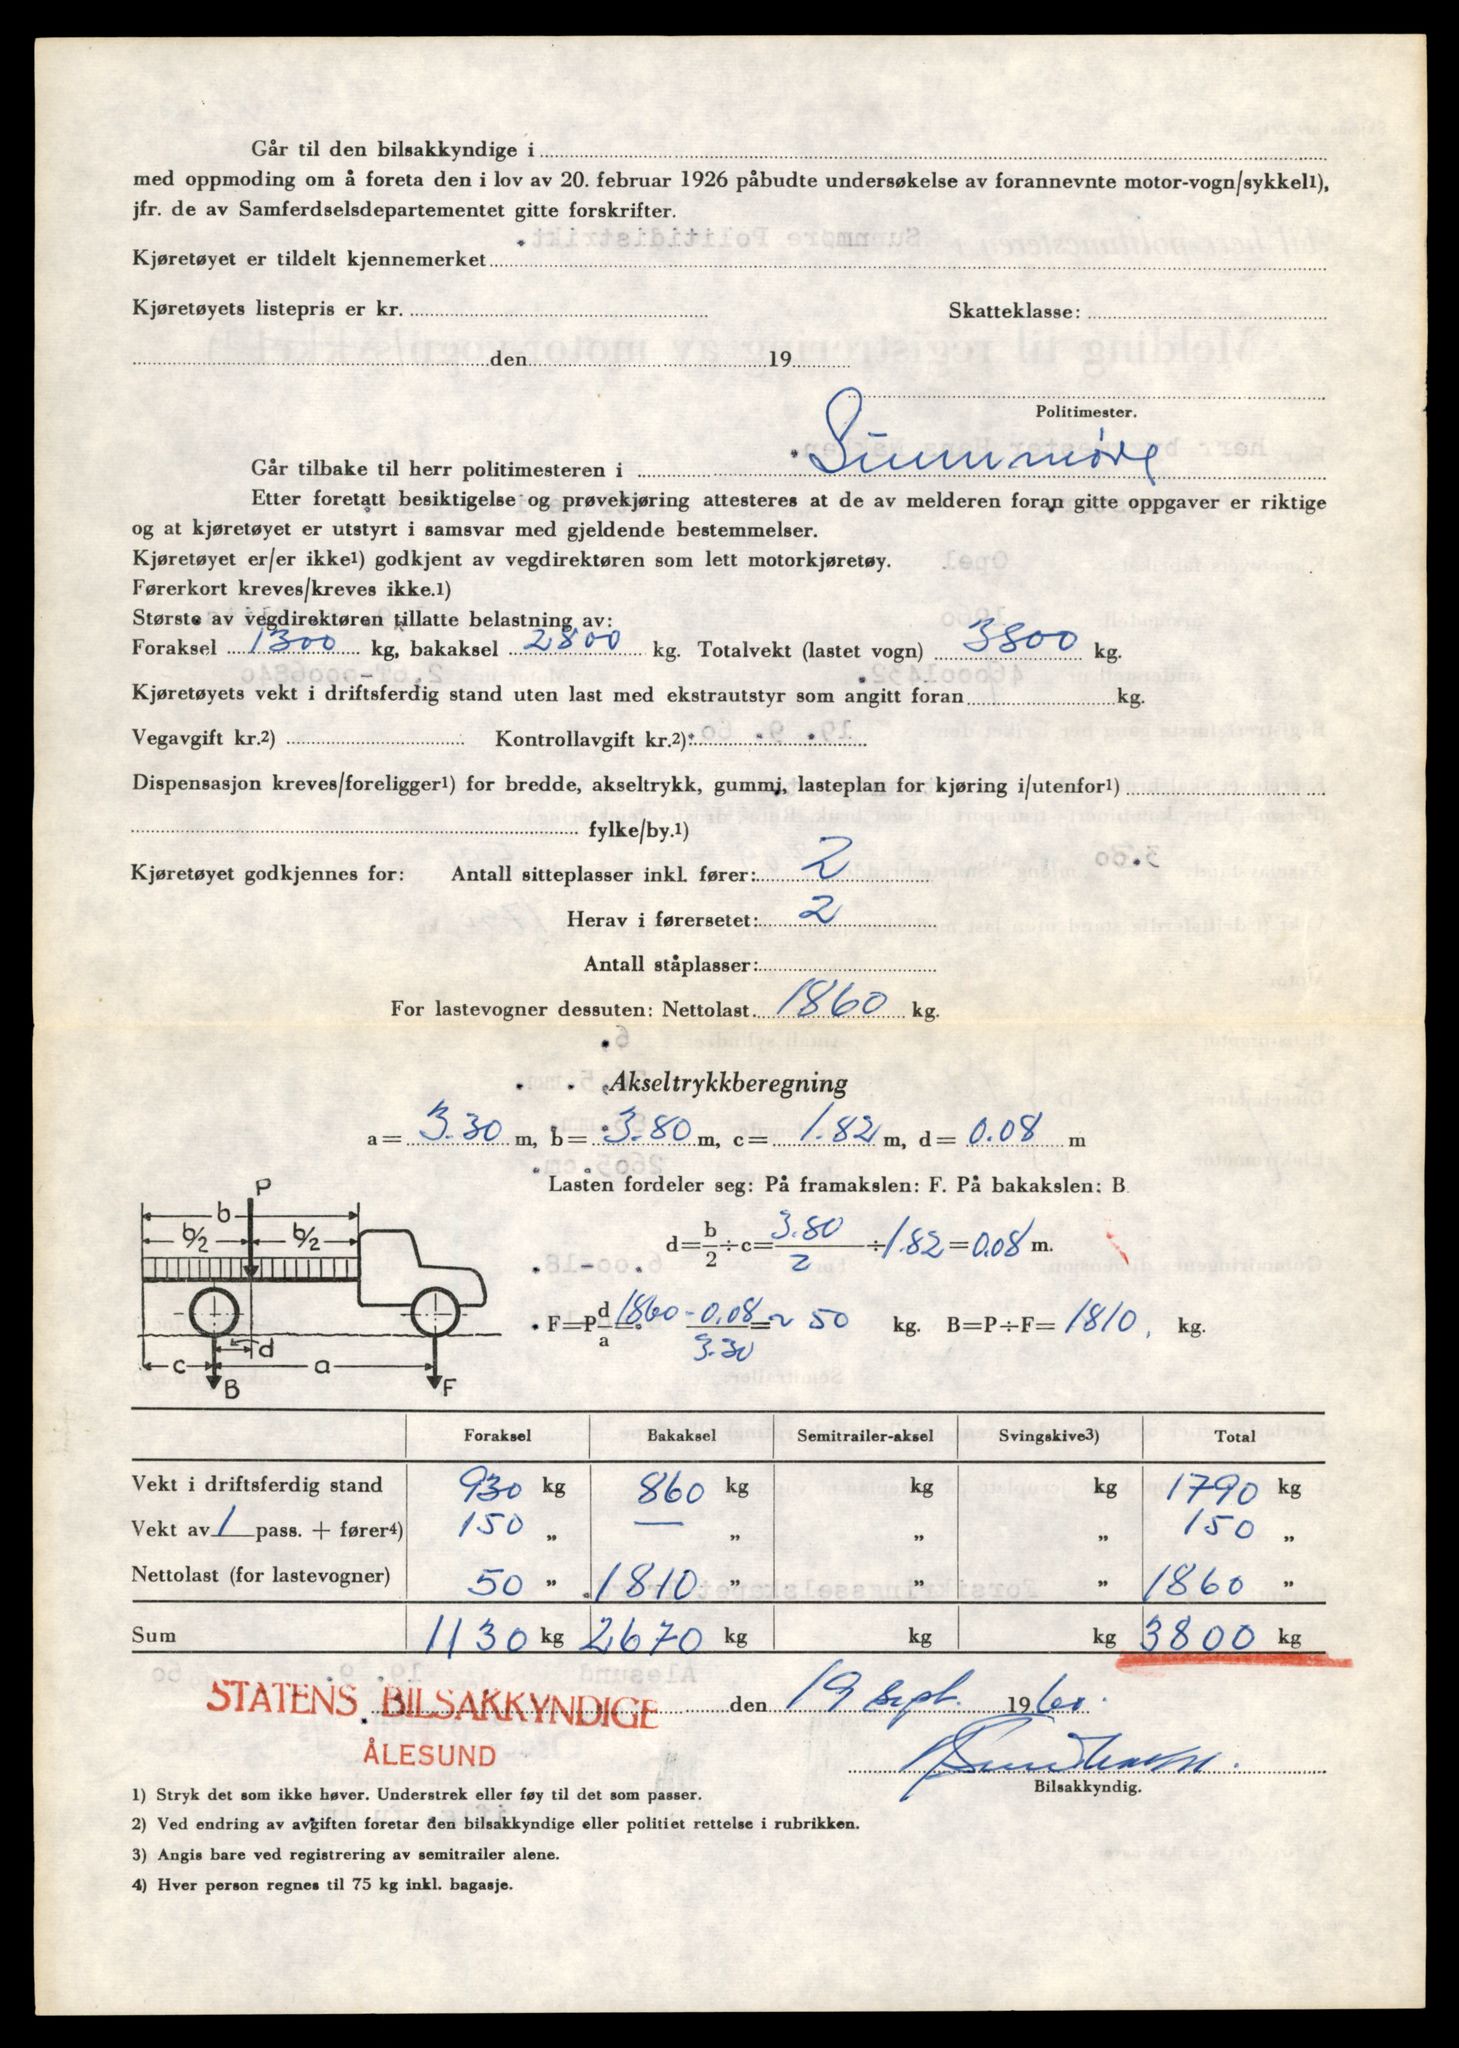 Går til den bilsakkyndige i
med oppmoding om å foreta den i lov av 20. februar 1926 påbudte undersøkelse av forannevnte motor-vogn/sykkel1),
jfr. de av Samferdselsdepartementet gitte forskrifter.
Kjøretøyet er tildelt kjennemerket
Kjøretøyets listepris er kr. Skatteklasse:
den 19
Politimester.
Går tilbake til herr politimesteren i Sunnmøre
Etter foretatt besiktigelse og prøvekjøring attesteres at de av melderen foran gitte oppgaver er riktige
og at kjøretøyet er utstyrt i samsvar med gjeldende bestemmelser.
Kjøretøyet er/er ikke1) godkjent av vegdirektøren som lett motorkjøretøy.
Førerkort kreves/kreves ikke.1)
Største av vegdirektøren tillatte belastning av:
Foraksel 1300 kg, bakaksel 2800 kg. Totalvekt (lastet vogn) 3800 kg.
Kjøretøyets vekt i driftsferdig stand uten last med ekstrautstyr som angitt foran kg.
Vegavgift kr.2) Kontrollavgift kr.2):
Dispensasjon kreves/foreligger1) for bredde, akseltrykk, gummi, lasteplan for kjøring i/utenfor1)
fylke/by.1)
Kjøretøyet godkjennes for: Antall sitteplasser inkl. fører: 2
Herav i førersetet: 2
Antall ståplasser:
For lastevogner dessuten: Nettolast 1860 kg.
Akseltrykkberegning
a = 3.30 m, b = 3.80 m, c = 1.82 m, d = 0.08 m
Lasten fordeler seg: På framakslen: F. På bakakslen: B.
d = b/2 ÷ c = 3.80/2 ÷ 1.82 = 0.08 m.
F = P d/a = 1860 - 0.08/3.30 = ~ 50 kg. B = P ÷ F = 1810. kg.
P
b
b/2 b/2
c d a
B F
Foraksel Bakaksel Semitrailer-aksel Svingskive3) Total
Vekt i driftsferdig stand 930 kg 860 kg kg kg 1790 kg
Vekt av 1 pass. + fører4) 150 „ — „ „ „ 150 „
Nettolast (for lastevogner) 50 „ 1810 „ „ „ 1860 „
Sum 1130 kg 2670 kg kg kg 3800 kg
STATENS BILSAKKYNDIGE den 19 sept. 1960.
ÅLESUND
Bilsakkyndig.
1) Stryk det som ikke høver. Understrek eller føy til det som passer.
2) Ved endring av avgiften foretar den bilsakkyndige eller politiet rettelse i rubrikken.
3) Angis bare ved registrering av semitrailer alene.
4) Hver person regnes til 75 kg inkl. bagasje.